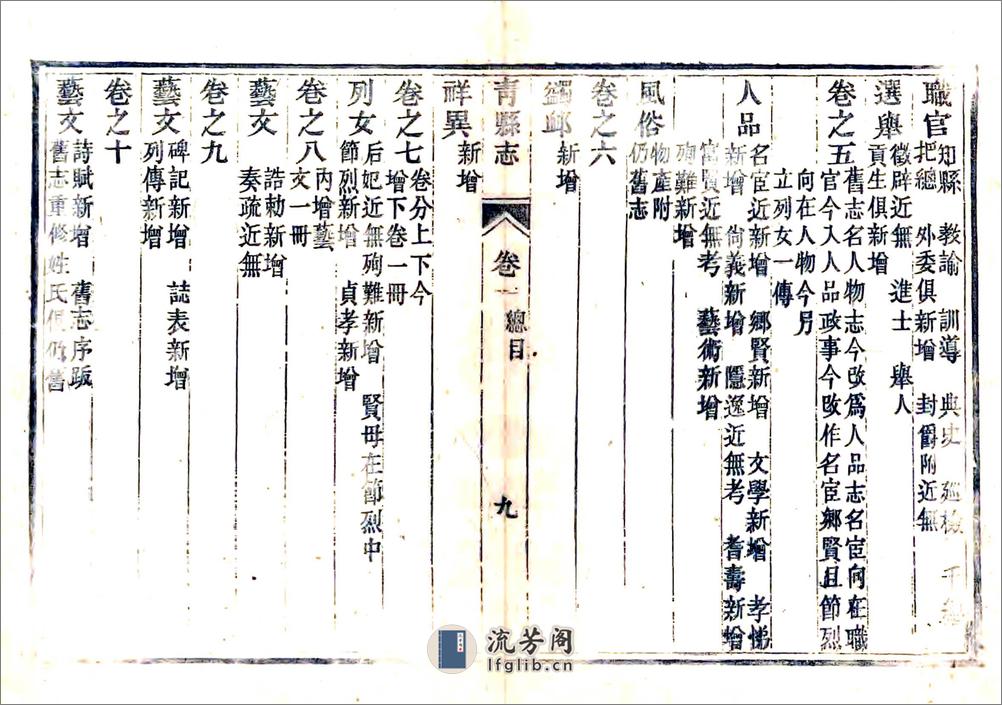 職官知縣 教諭 訓導 典史 廵檢 千總
把總 外委俱新增 封爵附近無
選舉徵辟近無 進士 舉人
貢生俱新增
卷之五舊志名人物志今改爲人品志名宦向在職
官今入人品政事今改作名宦鄉賢且節烈
向在人物今另
立列女一傳
人品名宦近新增 鄉賢新增 文學新增 孝悌
新增 尙義新增 隱逸近無考 耆壽新增
宦賢近無考 藝術新增
殉難新增
風俗物產附
仍舊志
卷之六
蠲卹新增
青縣志 卷一 總目 九
祥異新增
卷之七卷分上下今
增下卷一冊
列女后妃近無殉難新增 賢母在節烈中
節烈新增 貞孝新增
卷之八內增藝
文一冊
藝文誥勅新增
奏疏近無
卷之九
藝文碑記新增 誌表新增
列傳新增
卷之十
藝文詩賦新增 舊志序跋
舊志重修姓氏俱仍舊
流芳阁
lfglib.cn